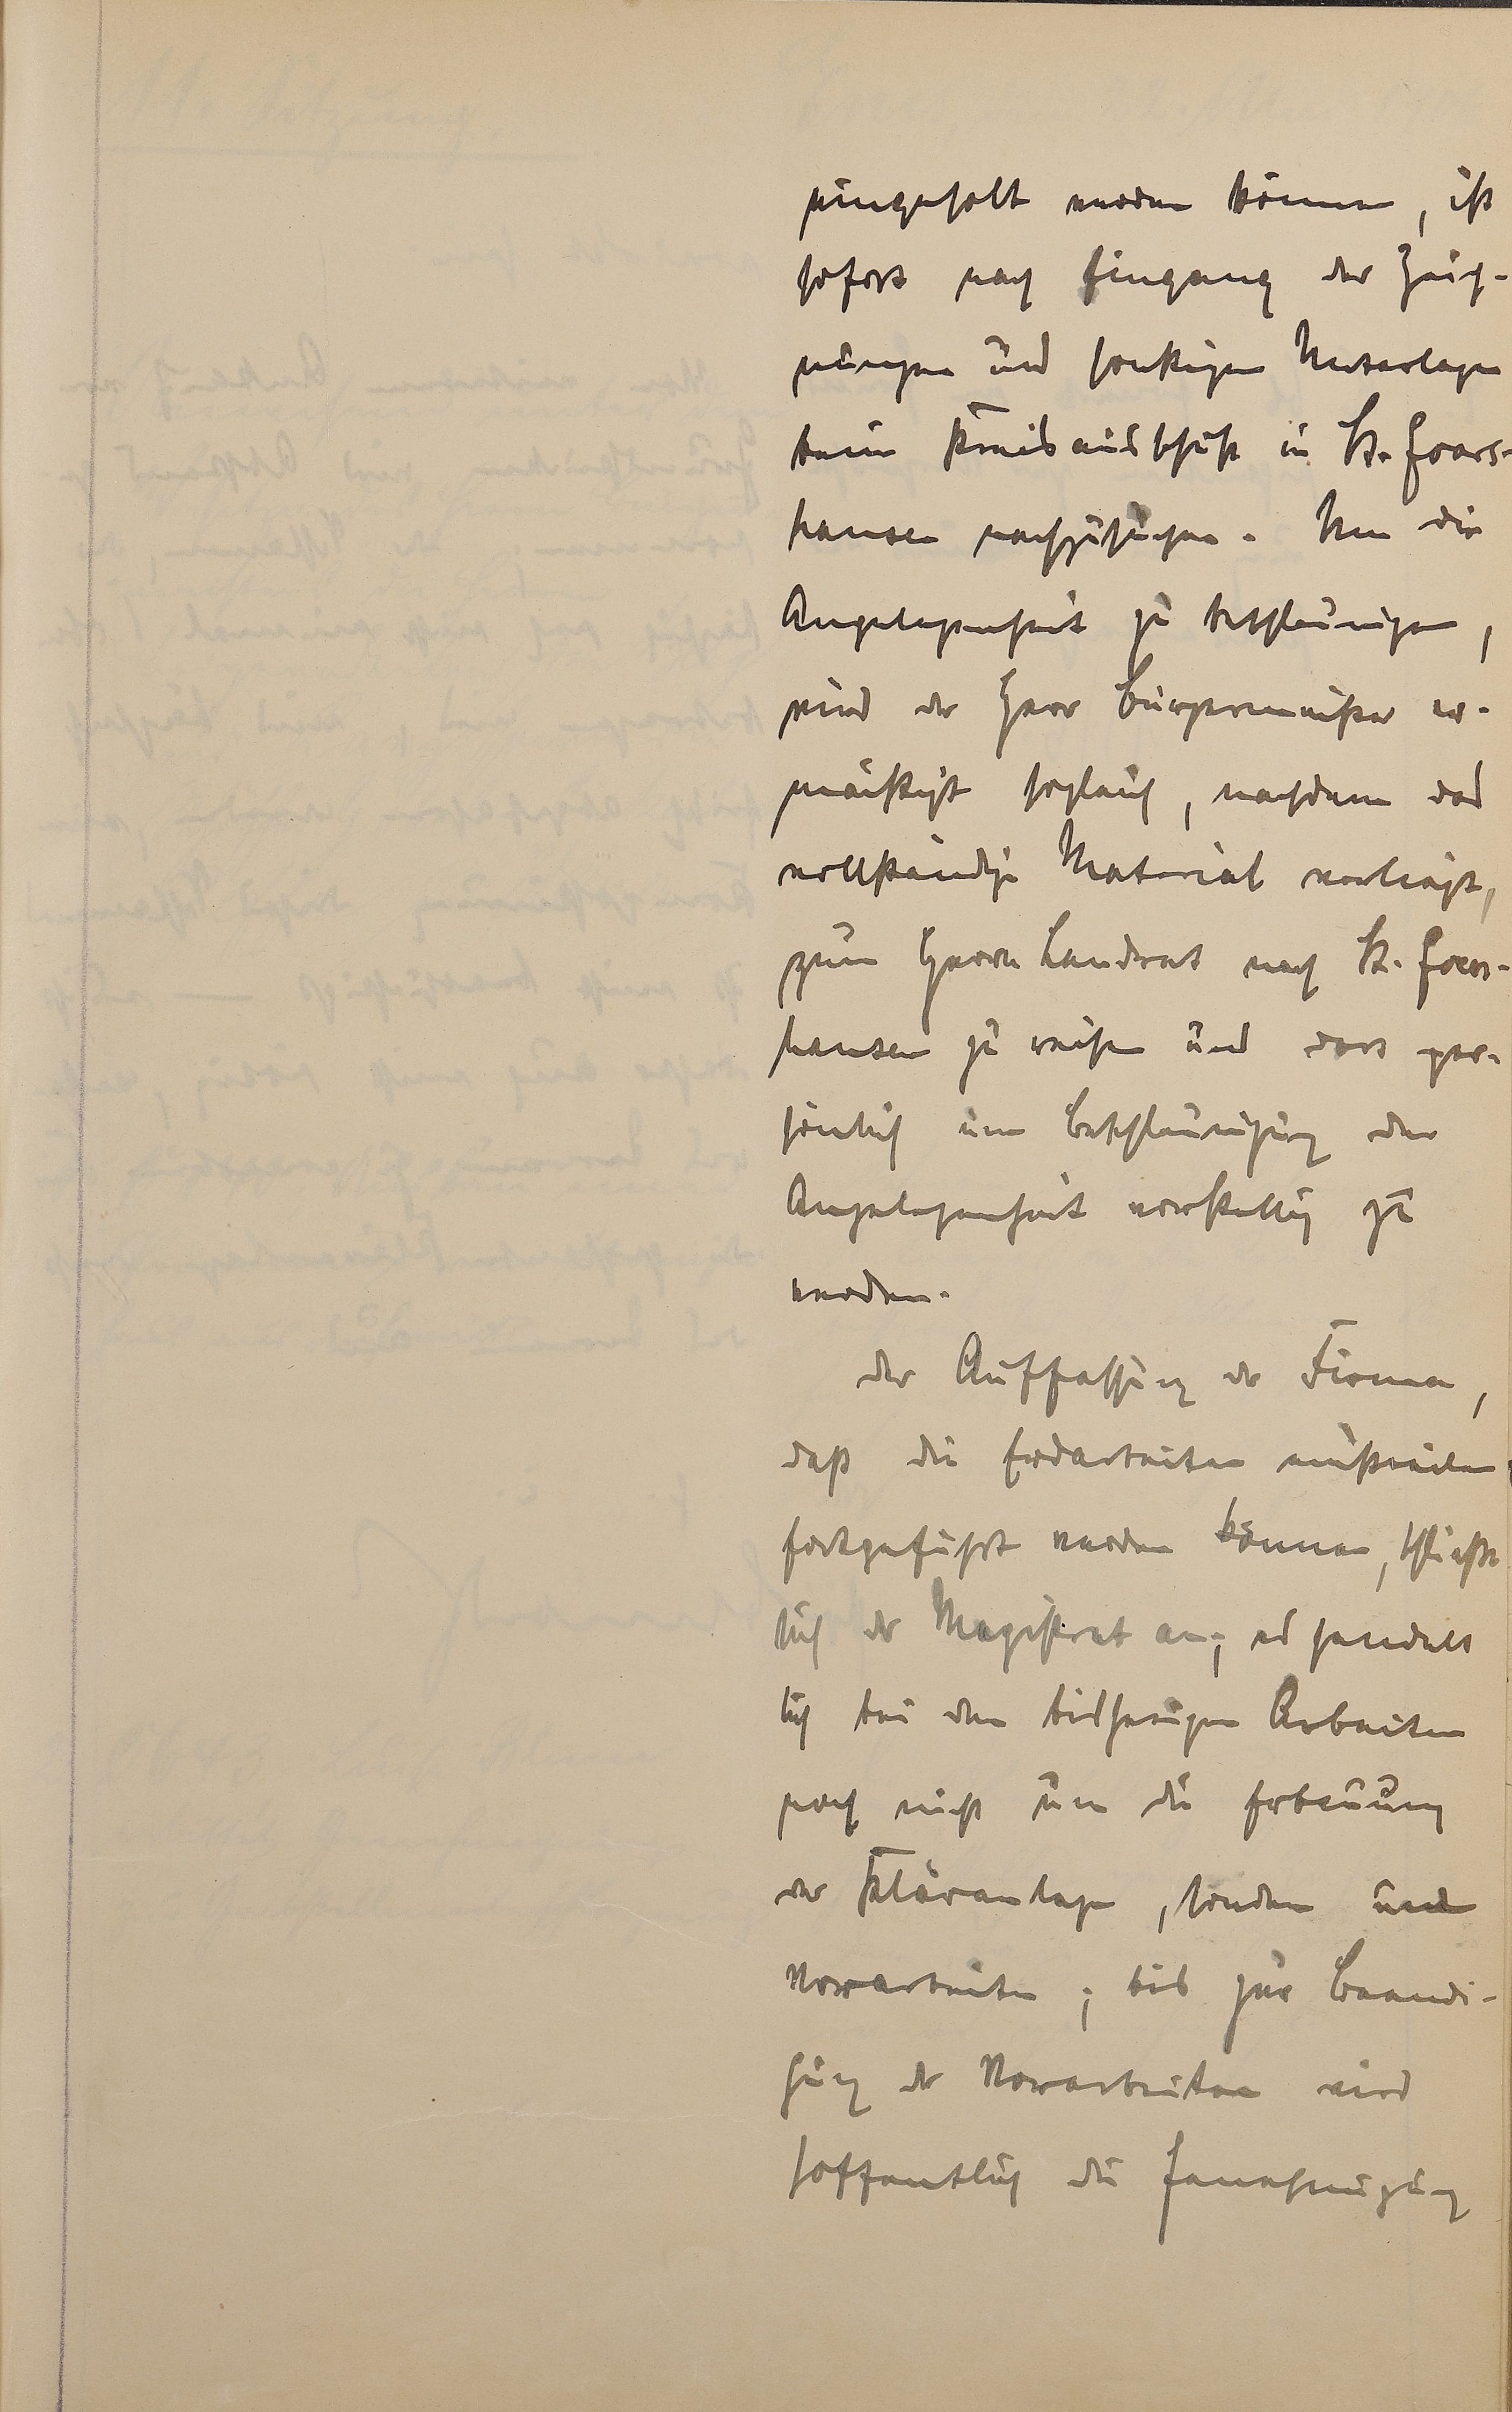 eingeholt werden können, ist
sofort nach Eingang der Zeich-
nungen und sonstigen Unterlagen
beim Kreisausschuß in St. Goars-
hausen nachzusuchen. Um die
Angelegenheit zu beschleunigen,
wird der Herr Bürgermeister er-
mächtigt sogleich, nachdem das
vollständige Material vorliegt,
zum Herrn Landrat nach St. Goars-
hausen zu reisen und dort per-
sönlich um Beschleunigung der
Angelegenheit vorstellig zu
werden.
Der Auffassung der Firma,
daß die Erdarbeiten einstweilen
fortgeführt werden können, schließt
sich der Magistrat an; es handelt
sich bei den bisherigen Arbeiten
noch nicht um die Erbauung
der Kläranlage, sondern und
Vorarbeiten; bis zur Beendi-
gung der Vorarbeiten wird
hoffentlich die Genehmigung